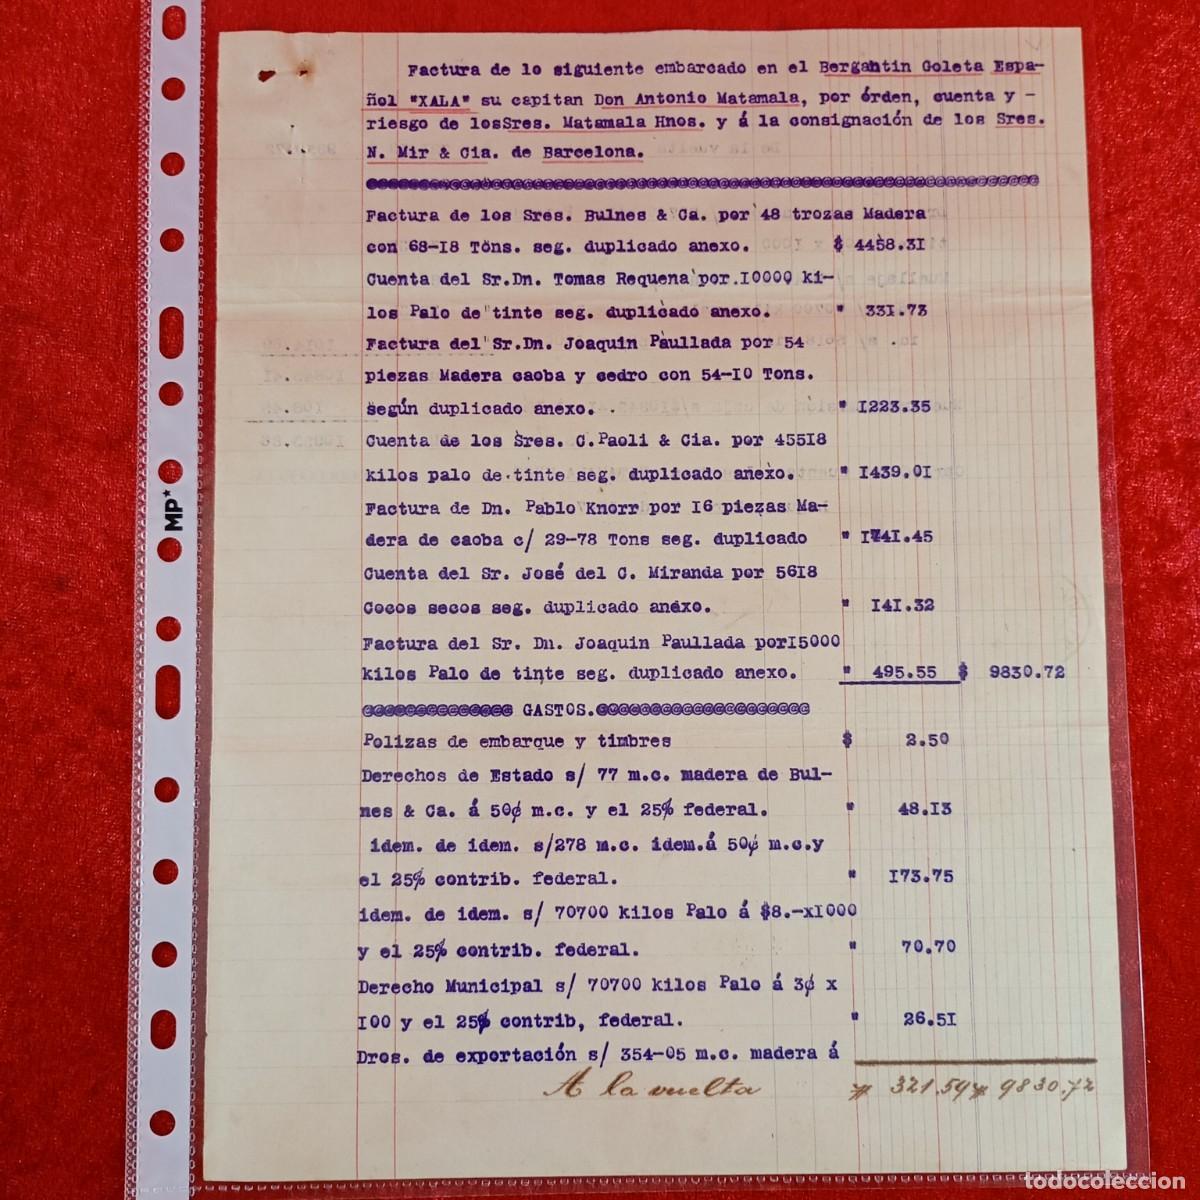 Factura de lo siguiente embarcado en el Bergantin Goleta Espa-
ñol "XALA" su capitan Don Antonio Matamala, por órden, cuenta y -
riesgo de losSres. Matamala Hnos. y á la consignación de los Sres.
N. Mir & Cia. de Barcelona.
Factura de los Sres. Bulnes & Ca. por 48 trozas Madera
con 68-18 Tons. seg. duplicado anexo. $ 4458.31
Cuenta del Sr.Dn. Tomas Requena por 10000 ki-
los Palo de tinte seg. duplicado anexo. " 331.73
Factura del Sr.Dn. Joaquin Paullada por 54
piezas Madera caoba y cedro con 54-10 Tons.
según duplicado anexo. " 1223.35
Cuenta de los Sres. C.Paoli & Cia. por 45518
kilos palo de tinte seg. duplicado anexo. " 1439.01
Factura de Dn. Pablo Knorr por 16 piezas Ma-
dera de caoba c/ 29-78 Tons seg. duplicado " 1741.45
Cuenta del Sr. José del C. Miranda por 5618
Cocos secos seg. duplicado anexo. " 141.32
Factura del Sr. Dn. Joaquin Paullada por15000
kilos Palo de tinte seg. duplicado anexo. " 495.55 $ 9830.72
GASTOS.
Polizas de embarque y timbres $ 2.50
Derechos de Estado s/ 77 m.c. madera de Bul-
nes & Ca. á 50¢ m.c. y el 25% federal. " 48.13
idem. de idem. s/278 m.c. idem.á 50¢ m.c.y
el 25% contrib. federal. " 173.75
idem. de idem. s/ 70700 kilos Palo á $8.-x1000
y el 25% contrib. federal. " 70.70
Derecho Municipal s/ 70700 kilos Palo á 3¢ x
100 y el 25% contrib, federal. " 26.51
Dros. de exportación s/ 354-05 m.c. madera á
A la vuelta $ 321.59 $ 9830.72
MP
todocoleccion